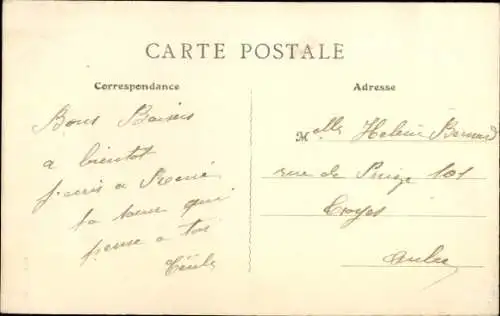 CARTE POSTALE
Correspondance
Bons Baisers
a bientot
à René
ta sœur qui
pense a toi
Cécile
Adresse
Melle Helène Bernard
rue de 101
Troyes
Aube